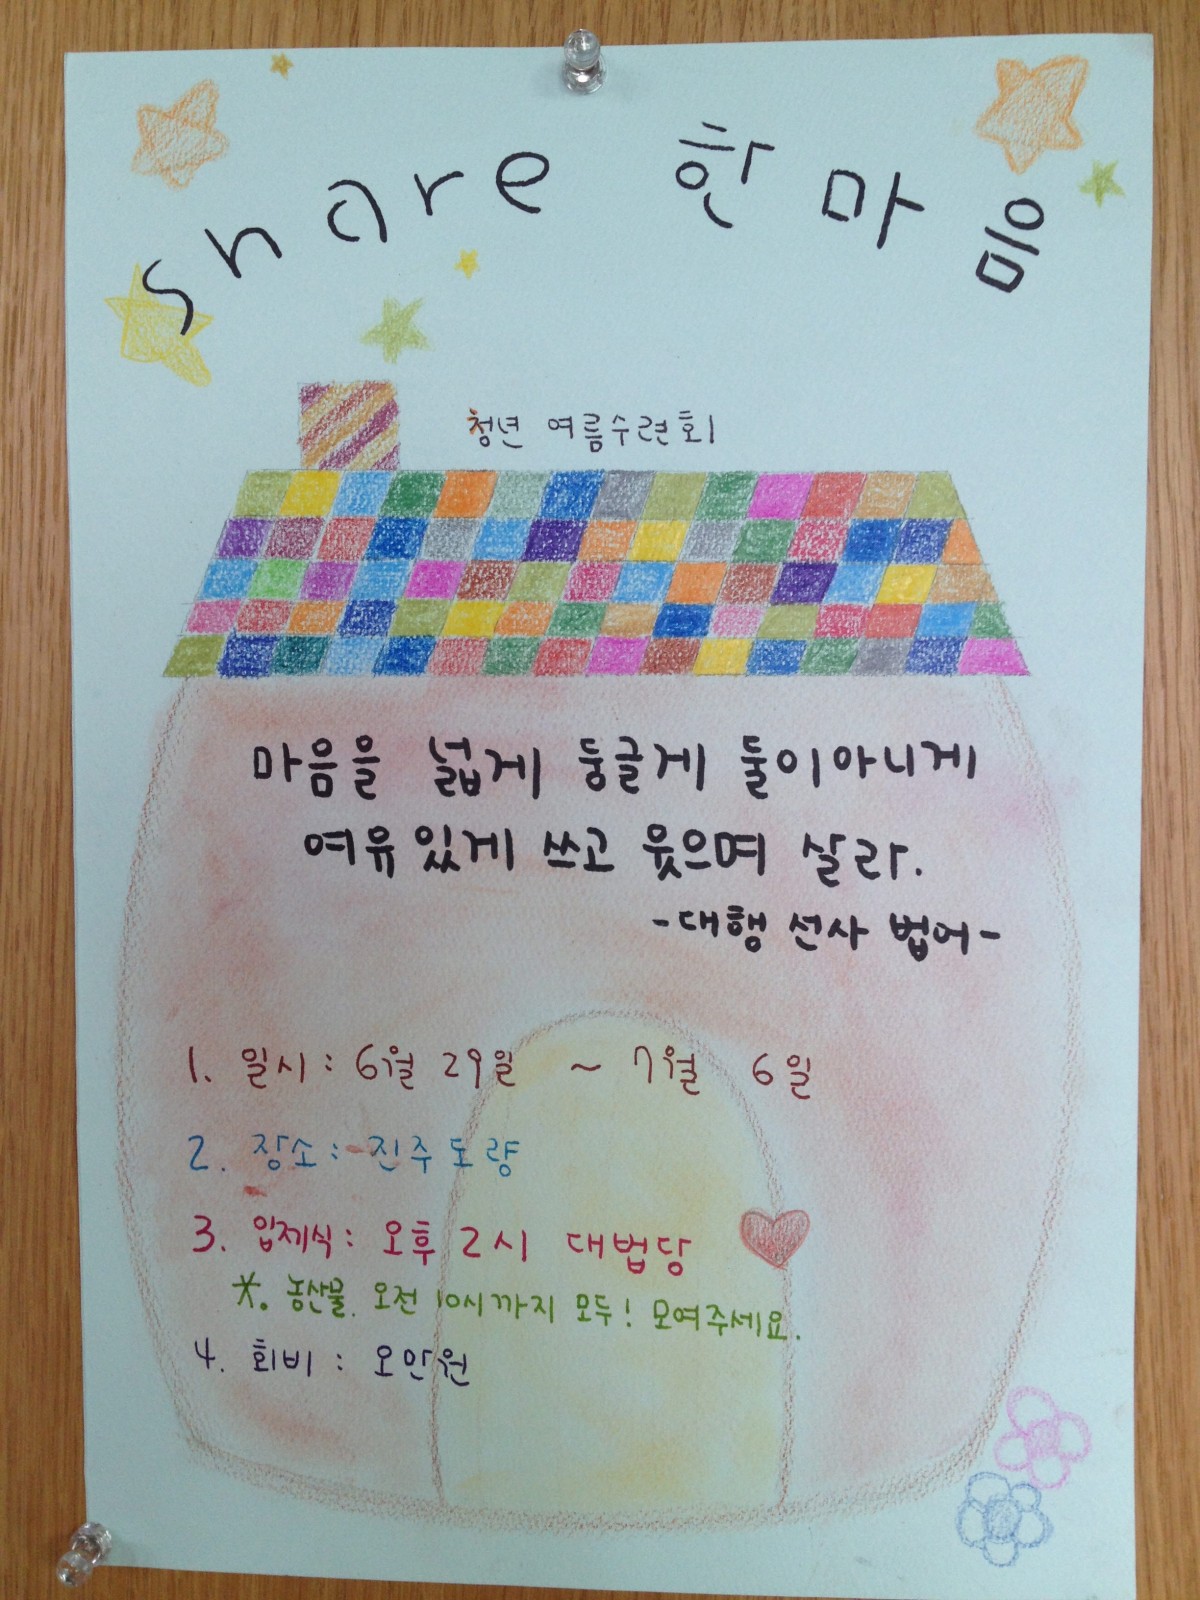 share 한마음
청년 여름수련회
마음을 넓게 둥글게 둘이아니게
여유있게 쓰고 웃으며 살라.
-대행 선사 법어-
1. 일시 : 6월 29일 ~ 7월 6일
2. 장소 : 진주도량
3. 입제식 : 오후 2시 대법당
*. 농산물. 오전 10시까지 모두! 모여주세요.
4. 회비 : 오만원